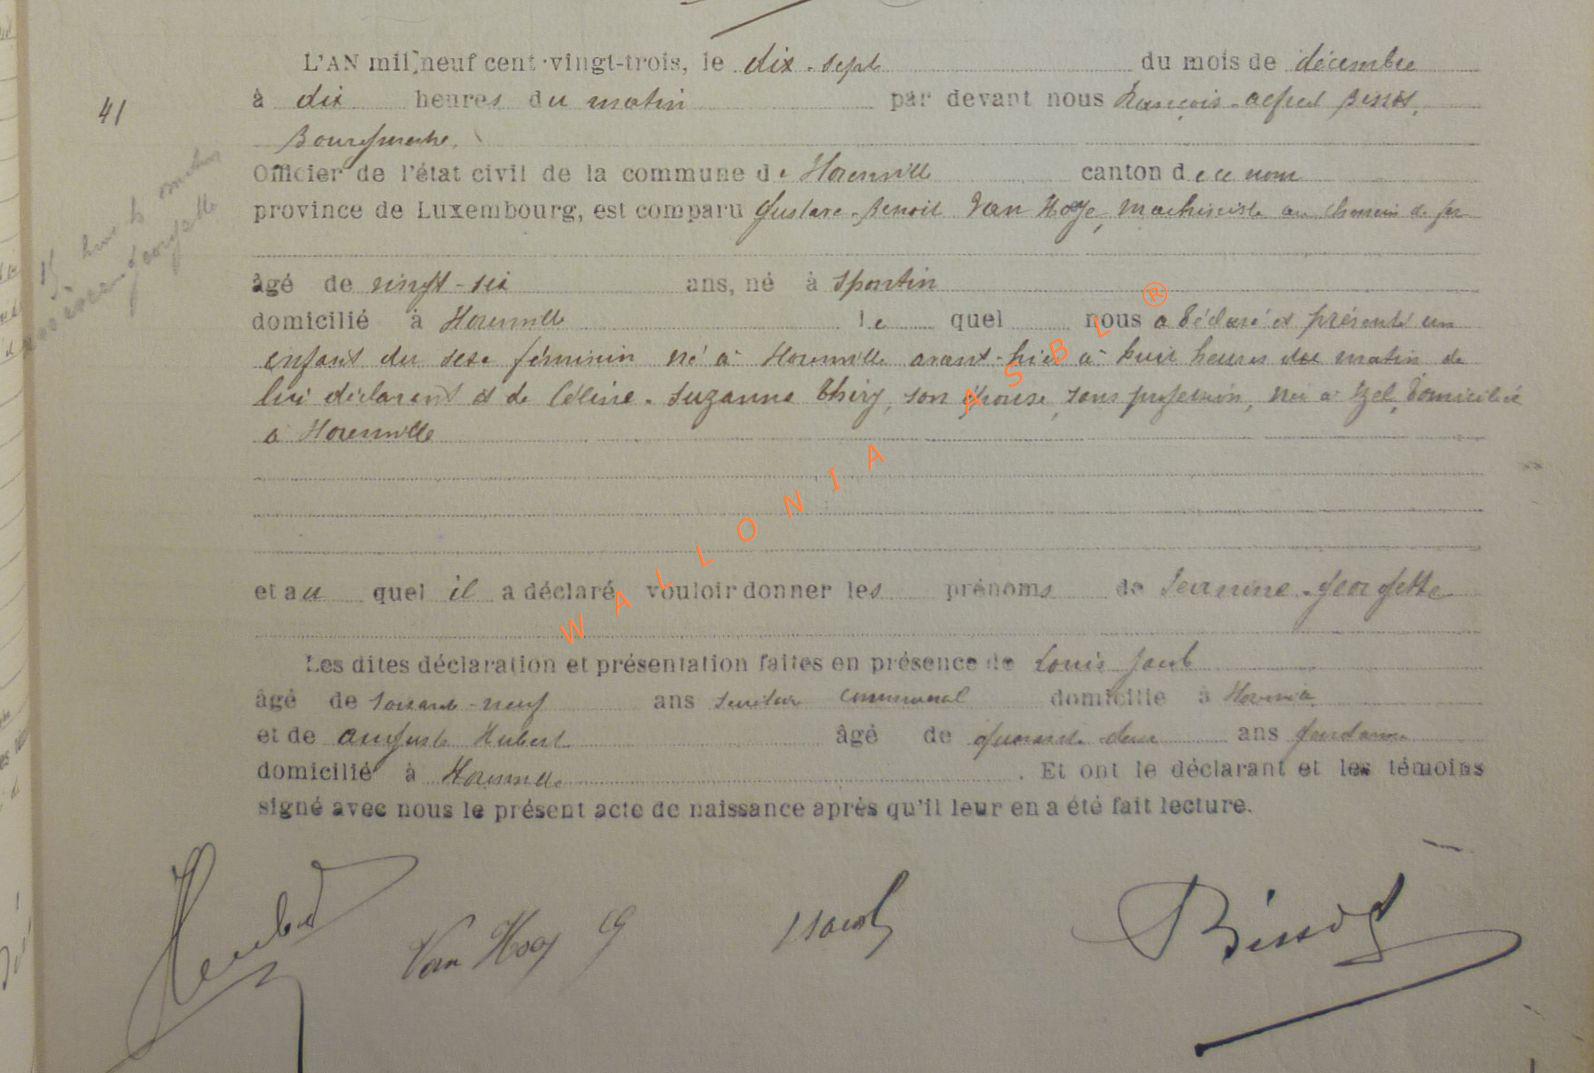 L'AN mil neuf cent vingt-trois, le dix-sept du mois de décembre
41
à dix heures du matin par devant nous François-Alfred Bissot,
Bourgmestre,
Officier de l'état civil de la commune de Houmville canton de ce nom
province de Luxembourg, est comparu Gustave-Benoit Van Hoye, machiniste au chemin de fer
âgé de vingt-six ans, né à Spontin
domicilié à le quel nous a déclaré et présenté un
enfant du sexe féminin né à avant-hier à huit heures du matin de
lui déclarant et de Céline-Suzanne Thiry, son épouse, sans profession, née à Izel, domiciliée
à
et au quel il a déclaré vouloir donner les prénoms de Jeannine-Georgette
Les dites déclaration et présentation faites en présence de Louis Jacob
âgé de soixante-neuf ans secrétaire communal domicilié à
et de Auguste Hubert âgé de quarante-deux ans gendarme
domicilié à . Et ont le déclarant et les témoins
signé avec nous le présent acte de naissance après qu'il leur en a été fait lecture.
Hubert
Van Hoy G
Bissot
WALLONIA ASBL ®